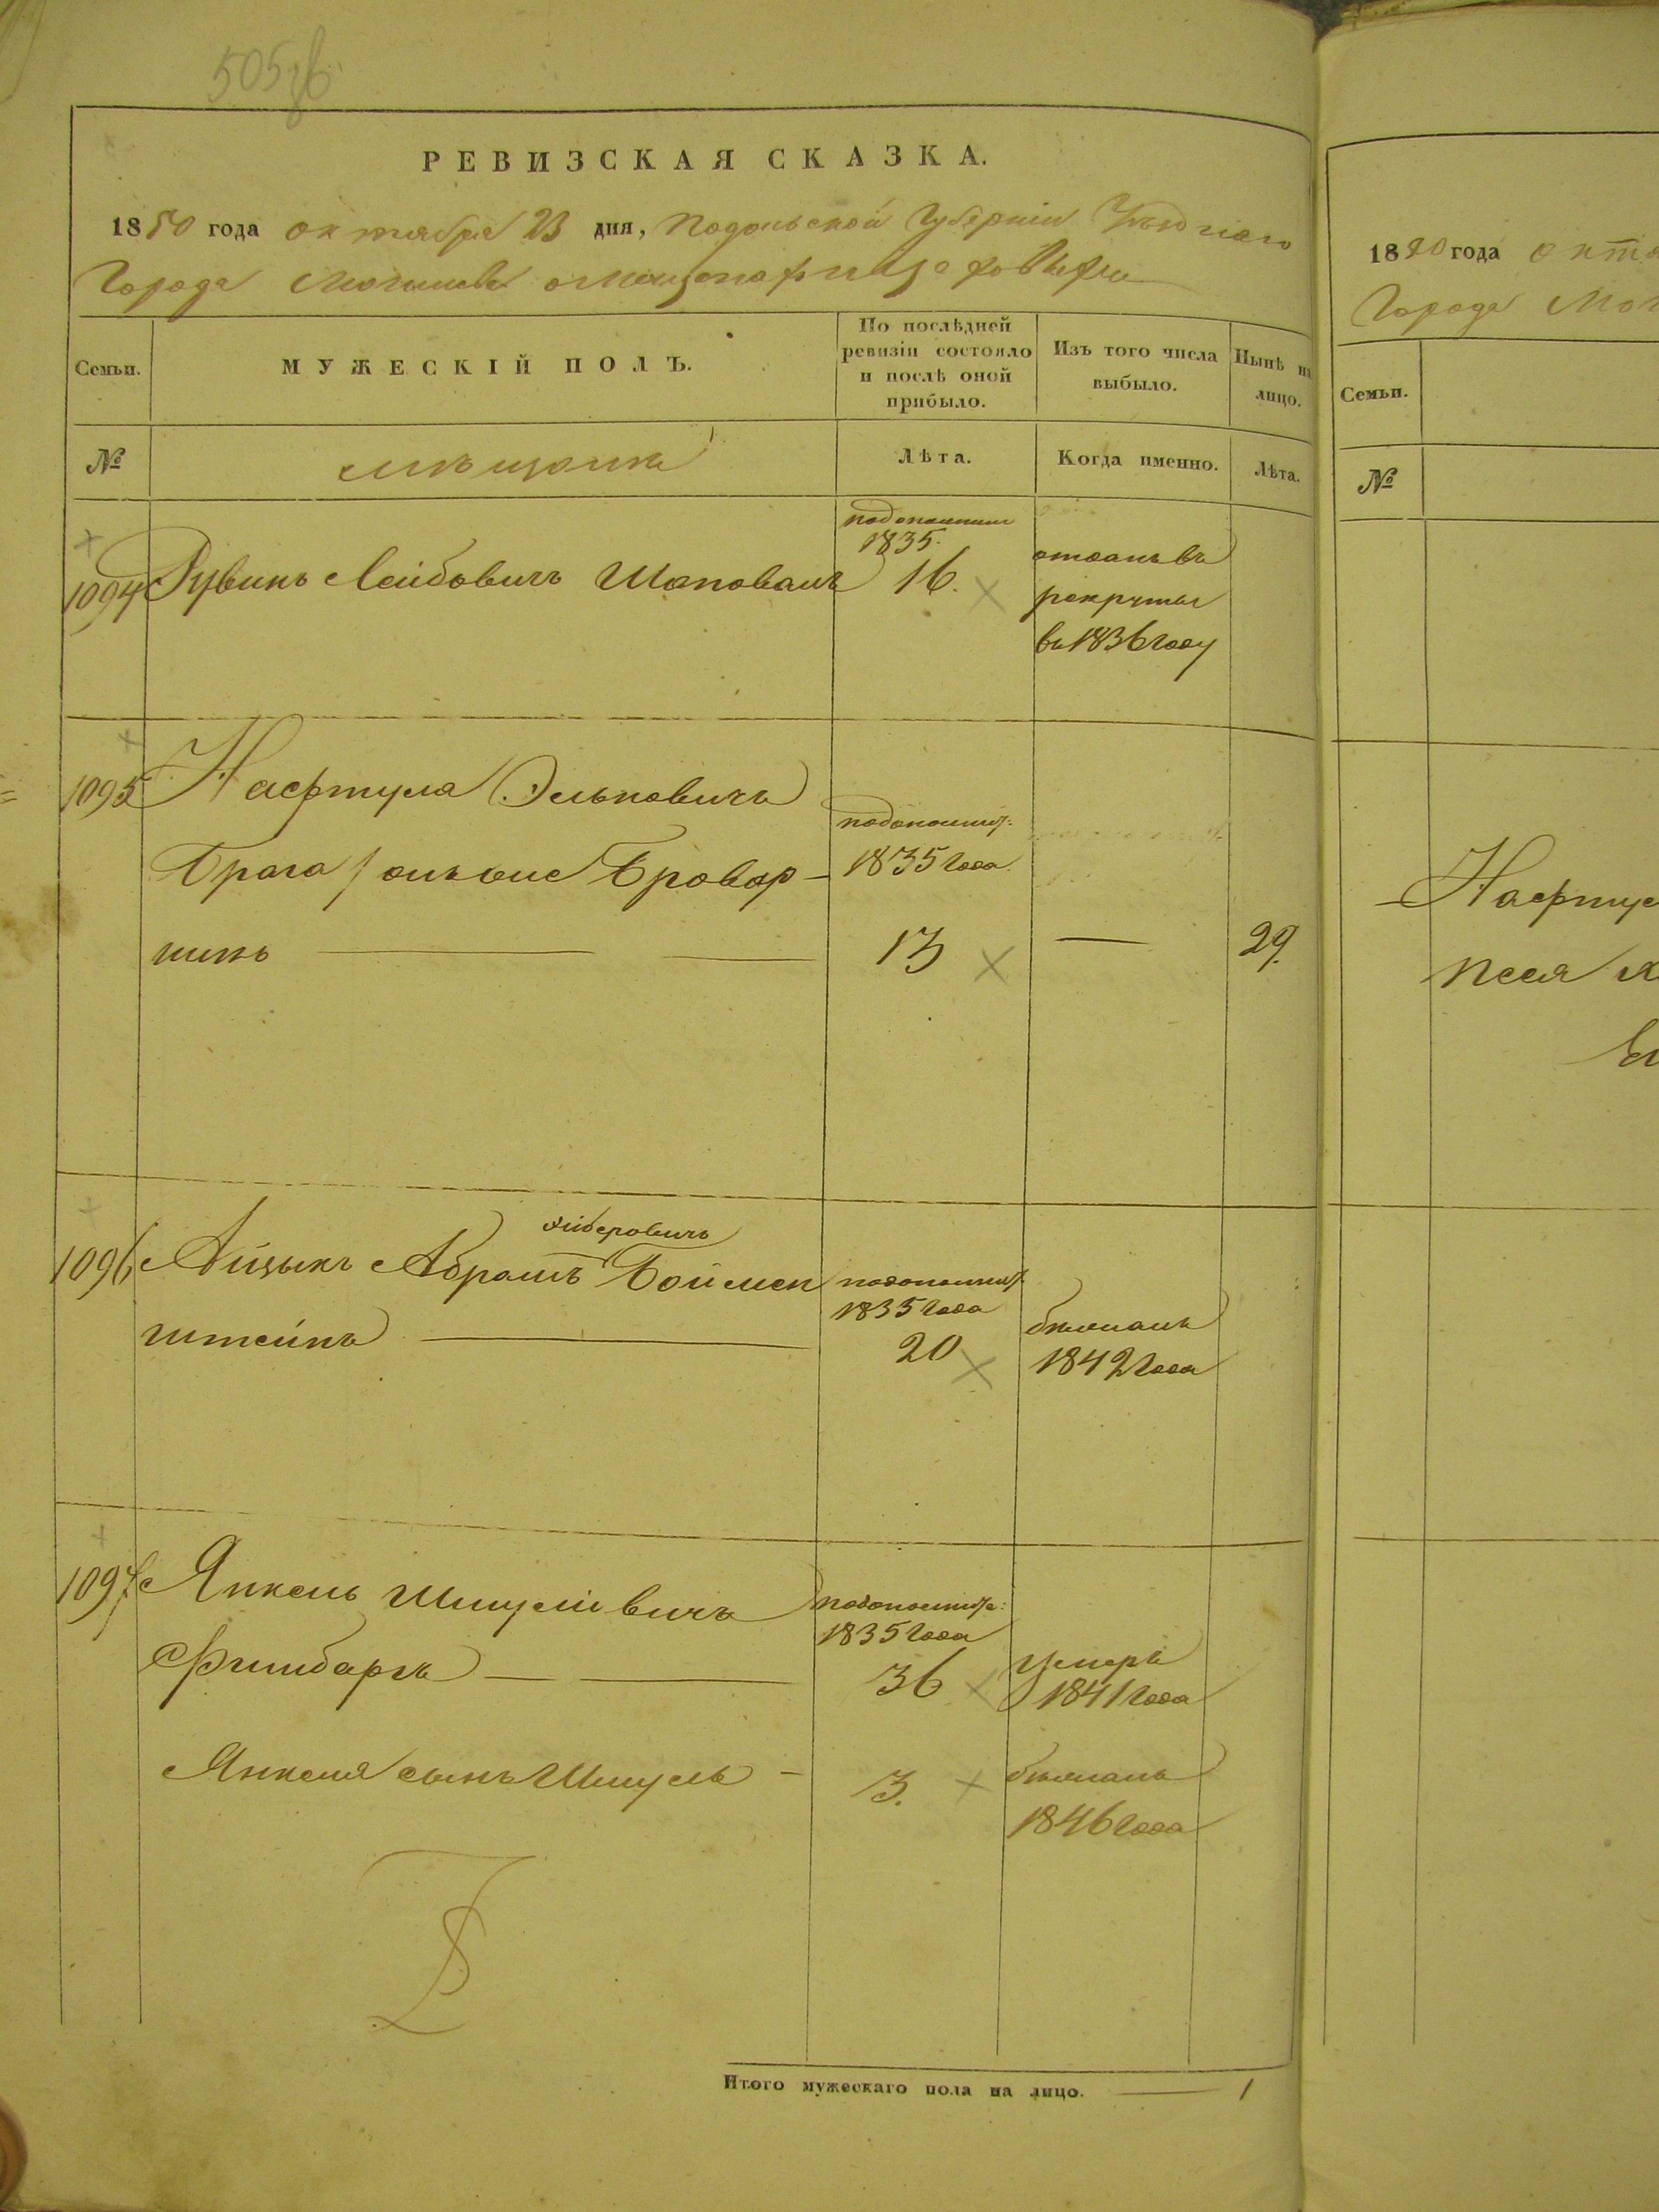 505 об
РЕВИЗСКАЯ СКАЗКА.
1850 года октября 23 дня, Подольской Губерніи Уѣзднаго
Города Могилева о мещанах
Семьи.
МУЖЕСКІЙ ПОЛЪ.
По послѣдней ревизіи состояло и послѣ оной прибыло.
Изъ того числа выбыло.
Нынѣ на лицо.
№
Лѣта.
Когда именно.
Лѣта.
1094 Рувинъ Лейбовичъ Шаповалъ
1835.
16.
отданъ въ
рекруты
въ 1836 году
1095 Нафтула Элькович
Брага онъ же Бровар-
никъ
1835 года
13
29.
1096 Айзыкъ Абрамъ Хиберовичъ Боймен
штейнъ
1835 года
20
бѣжалъ
1842 года
1097 Янкель Шмулiовичъ
Фишбаргъ
1835 года
36
умеръ
1841 года
Янкеля сынъ Шмуль
3.
бѣжалъ
1846 года
Итого мужескаго пола на лицо. 1
1850 года окт
Города Мог
Семьи.
№
Нафтул
Песя